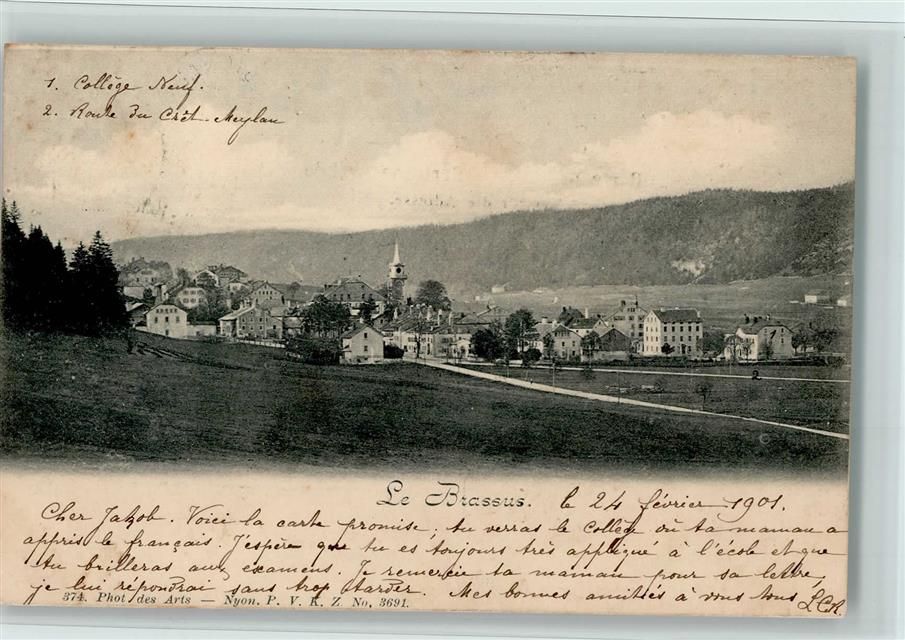 1. Collège Neuf.
2. Route du Crêt-Meylan
Le Brassus. le 24 février 1901.
Cher Jakob. Voici la carte promise, tu verras le collège où ta maman a
appris le français. J'espère que tu es toujours très appliqué à l'école et que
tu brilleras aux examens. Je remercie ta maman pour sa lettre,
je lui répondrai sans trop tarder. Mes bonnes amitiés à vous tous L.C.R.
374. Phot. des Arts — Nyon. P. V. K. Z. No. 3691.